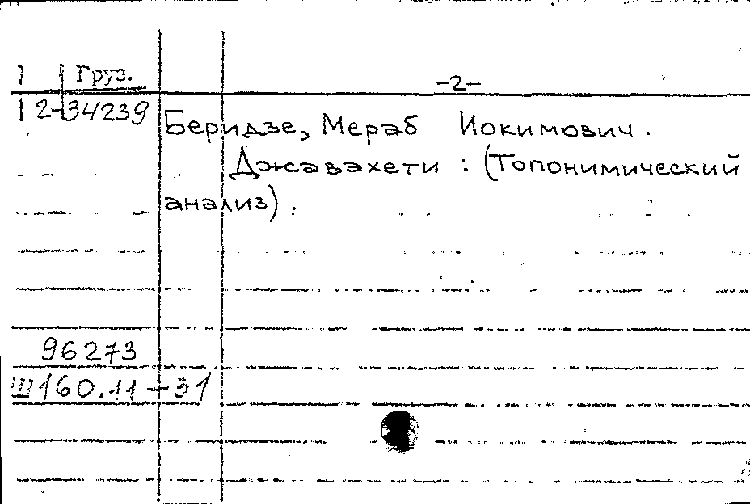 1 Груз. -2-
12-34239 Беридзе, Мераб Иокимович.
Джавахети : (Топонимический
анализ).
96273
Ш160.11-31